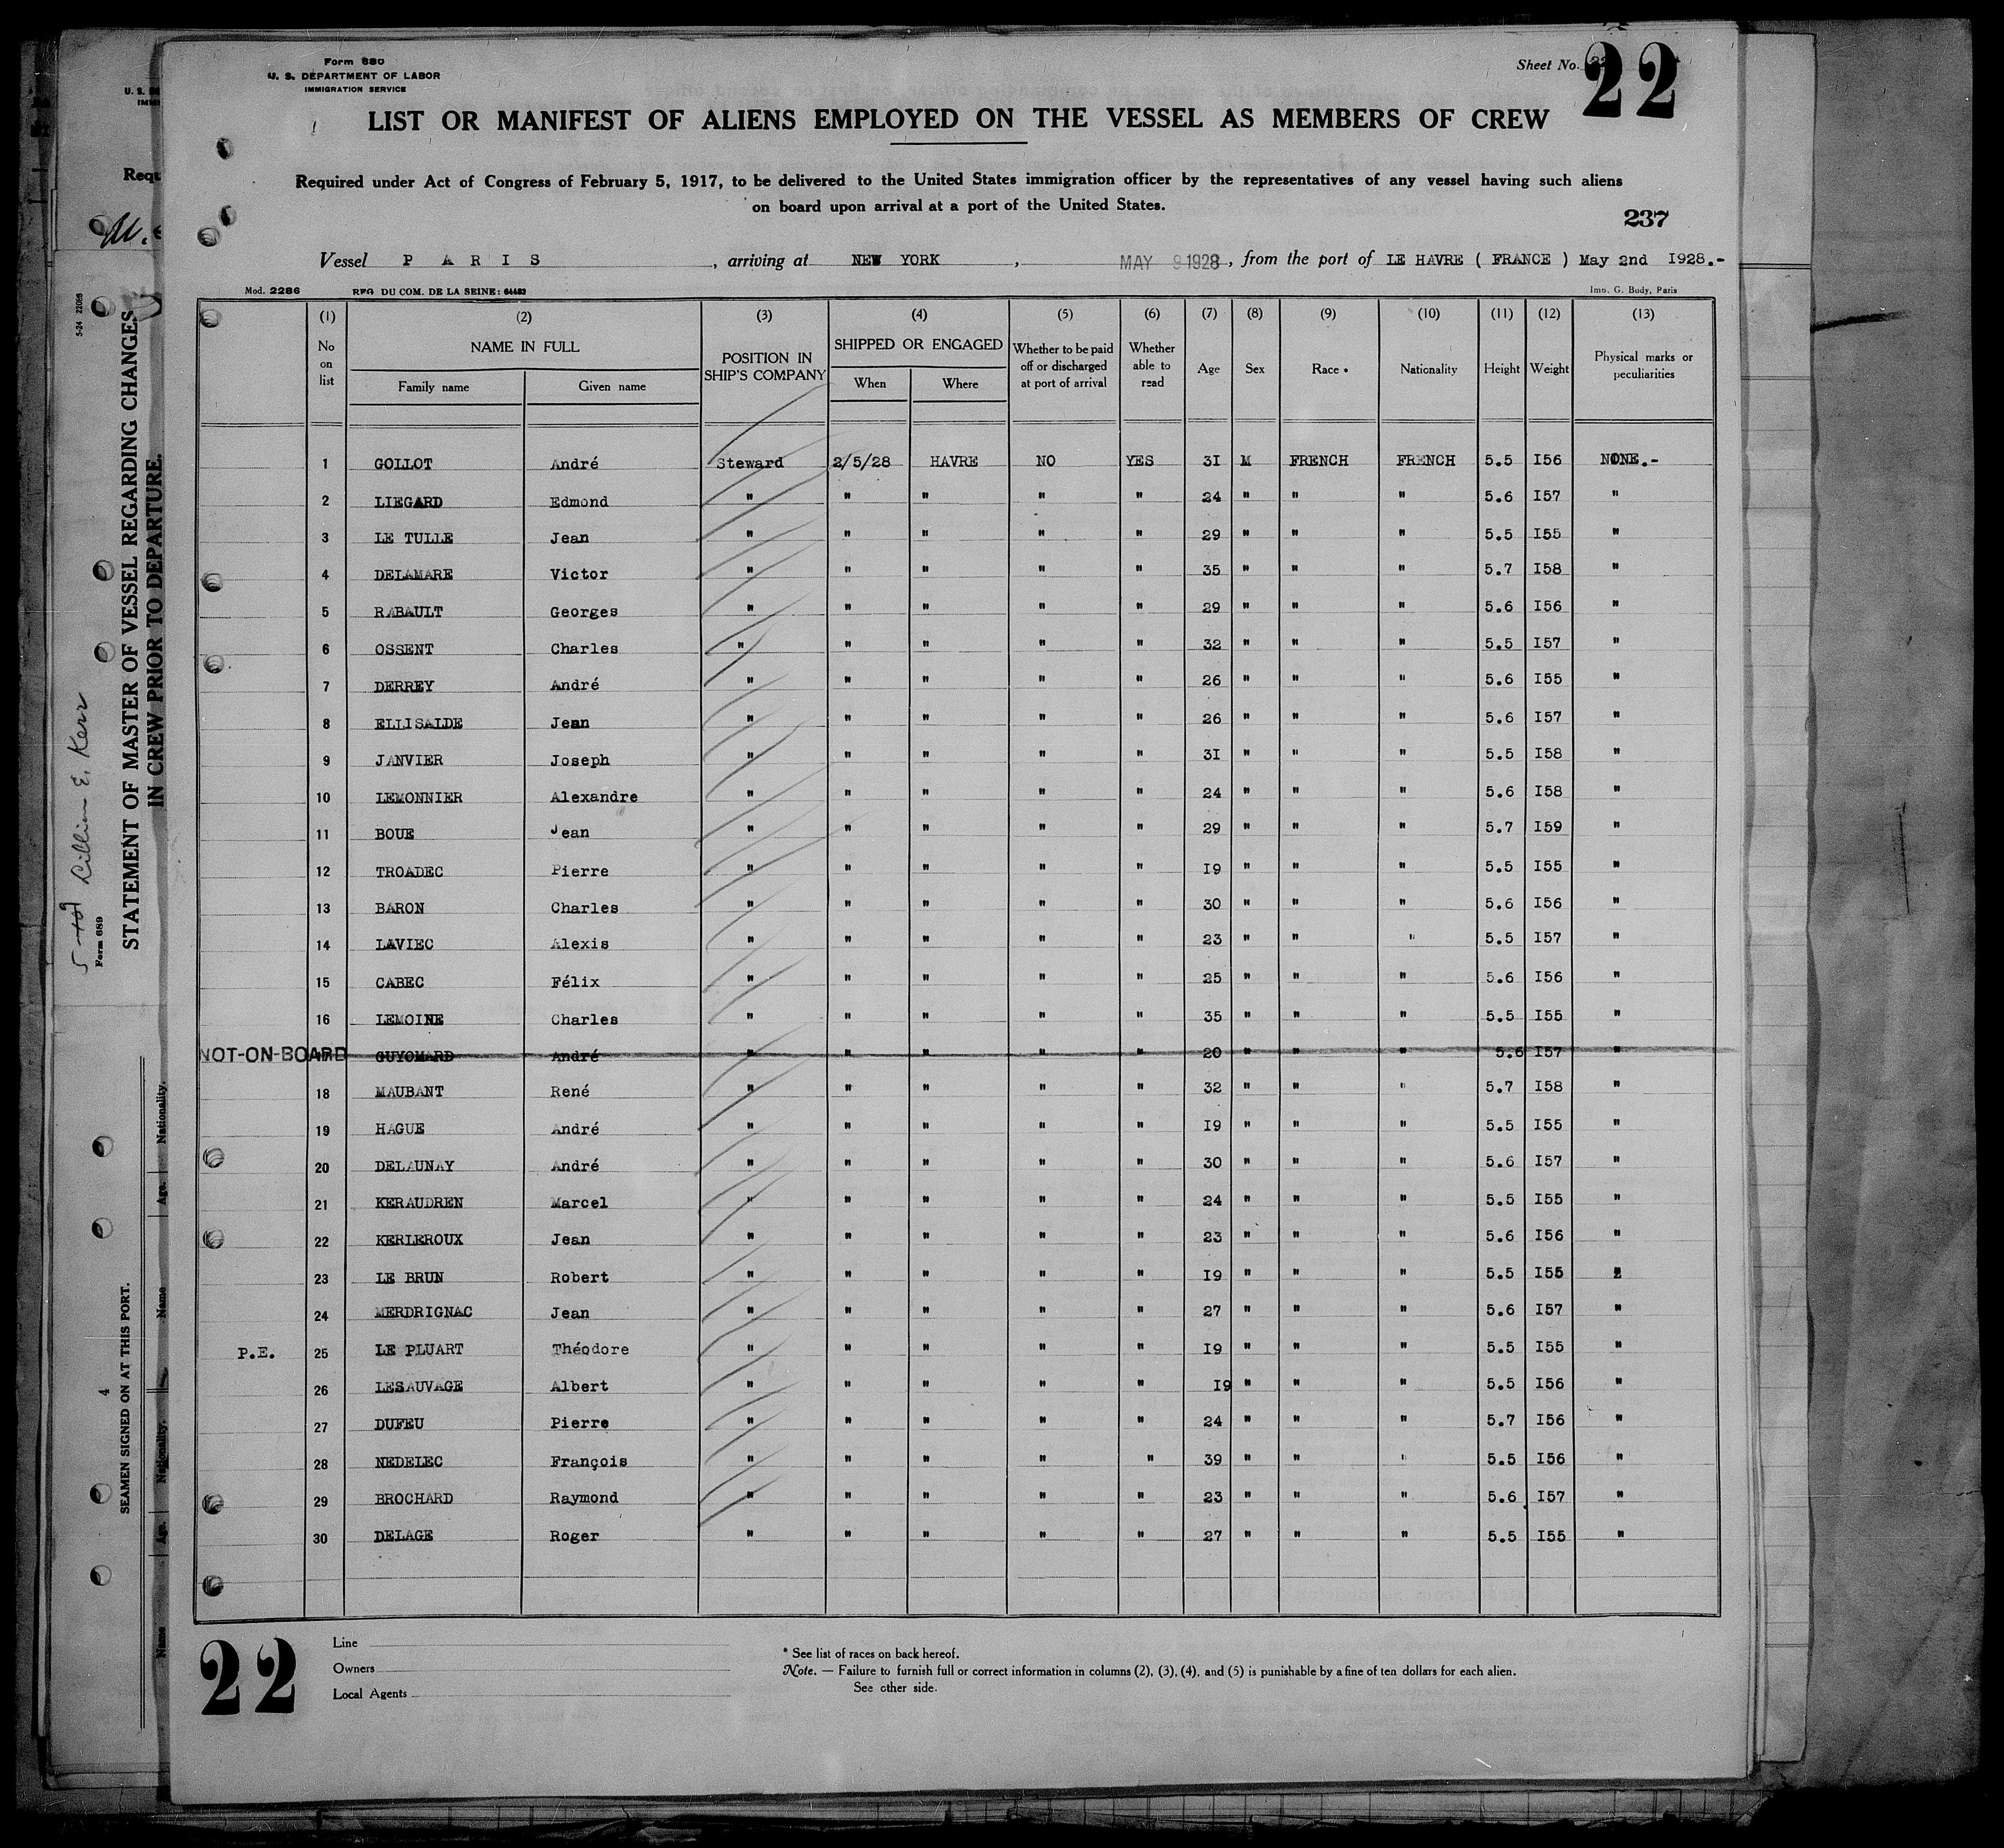 Form 680
U. S. DEPARTMENT OF LABOR
IMMIGRATION SERVICE
Sheet No. 22
LIST OR MANIFEST OF ALIENS EMPLOYED ON THE VESSEL AS MEMBERS OF CREW
Required under Act of Congress of February 5, 1917, to be delivered to the United States immigration officer by the representatives of any vessel having such aliens
on board upon arrival at a port of the United States.
237
Vessel P A R I S , arriving at NEW YORK , MAY 9 1928 , from the port of LE HAVRE ( FRANCE ) May 2nd 1928.-
Mod. 2286 REG. DU COM. DE LA SEINE: 64483 Imp. G. Body, Paris
(1) (2) (3) (4) (5) (6) (7) (8) (9) (10) (11) (12) (13)
No on list NAME IN FULL Family name Given name POSITION IN SHIP'S COMPANY SHIPPED OR ENGAGED When Where Whether to be paid off or discharged at port of arrival Whether able to read Age Sex Race * Nationality Height Weight Physical marks or peculiarities
1 GOLLOT André Steward 2/5/28 HAVRE NO YES 3I M FRENCH FRENCH 5.5 I56 NONE.-
2 LIEGARD Edmond " " " " " 24 " " " 5.6 I57 "
3 LE TULLE Jean " " " " " 29 " " " 5.5 I55 "
4 DELAMARE Victor " " " " " 35 " " " 5.7 I58 "
5 RABAULT Georges " " " " " 29 " " " 5.6 I56 "
6 OSSENT Charles " " " " " 32 " " " 5.5 I57 "
7 DERREY André " " " " " 26 " " " 5.6 I55 "
8 ELLISALDE Jean " " " " " 26 " " " 5.6 I57 "
9 JANVIER Joseph " " " " " 3I " " " 5.5 I58 "
10 LEMONNIER Alexandre " " " " " 24 " " " 5.6 I58 "
11 BOUE Jean " " " " " 29 " " " 5.7 I59 "
12 TROADEC Pierre " " " " " I9 " " " 5.5 I55 "
13 BARON Charles " " " " " 30 " " " 5.6 I56 "
14 LAVIEC Alexis " " " " " 23 " " " 5.5 I57 "
15 CABEC Félix " " " " " 25 " " " 5.6 I56 "
16 LEMOINE Charles " " " " " 35 " " " 5.5 I55 "
NOT-ON-BOARD 17 GUYOMARD André " " " " " 20 " " " 5.6 I57 "
18 MAUBANT René " " " " " 32 " " " 5.7 I58 "
19 HAGUE André " " " " " I9 " " " 5.5 I55 "
20 DELAUNAY André " " " " " 30 " " " 5.6 I57 "
21 KERAUDREN Marcel " " " " " 24 " " " 5.5 I55 "
22 KERLEROUX Jean " " " " " 23 " " " 5.6 I56 "
23 LE BRUN Robert " " " " " I9 " " " 5.5 I55 "
24 MERDRIGNAC Jean " " " " " 27 " " " 5.6 I57 "
P.E. 25 LE PLUART Théodore " " " " " I9 " " " 5.5 I55 "
26 LESAUVAGE Albert " " " " " I9 " " " 5.5 I56 "
27 DUFEU Pierre " " " " " 24 " " " 5.7 I56 "
28 NEDELEC François " " " " " 39 " " " 5.5 I56 "
29 BROCHARD Raymond " " " " " 23 " " " 5.6 I57 "
30 DELAGE Roger " " " " " 27 " " " 5.5 I55 "
22
Line
Owners
Local Agents
* See list of races on back hereof.
Note. — Failure to furnish full or correct information in columns (2), (3), (4), and (5) is punishable by a fine of ten dollars for each alien.
See other side.
Requ
5-24 22086
STATEMENT OF MASTER OF VESSEL REGARDING CHANGES
IN CREW PRIOR TO DEPARTURE.
Lillian E. Kerr
Form 689
SEAMEN SIGNED ON AT THIS PORT.
4
Name Age. Nationality. Name Age. Nationality.